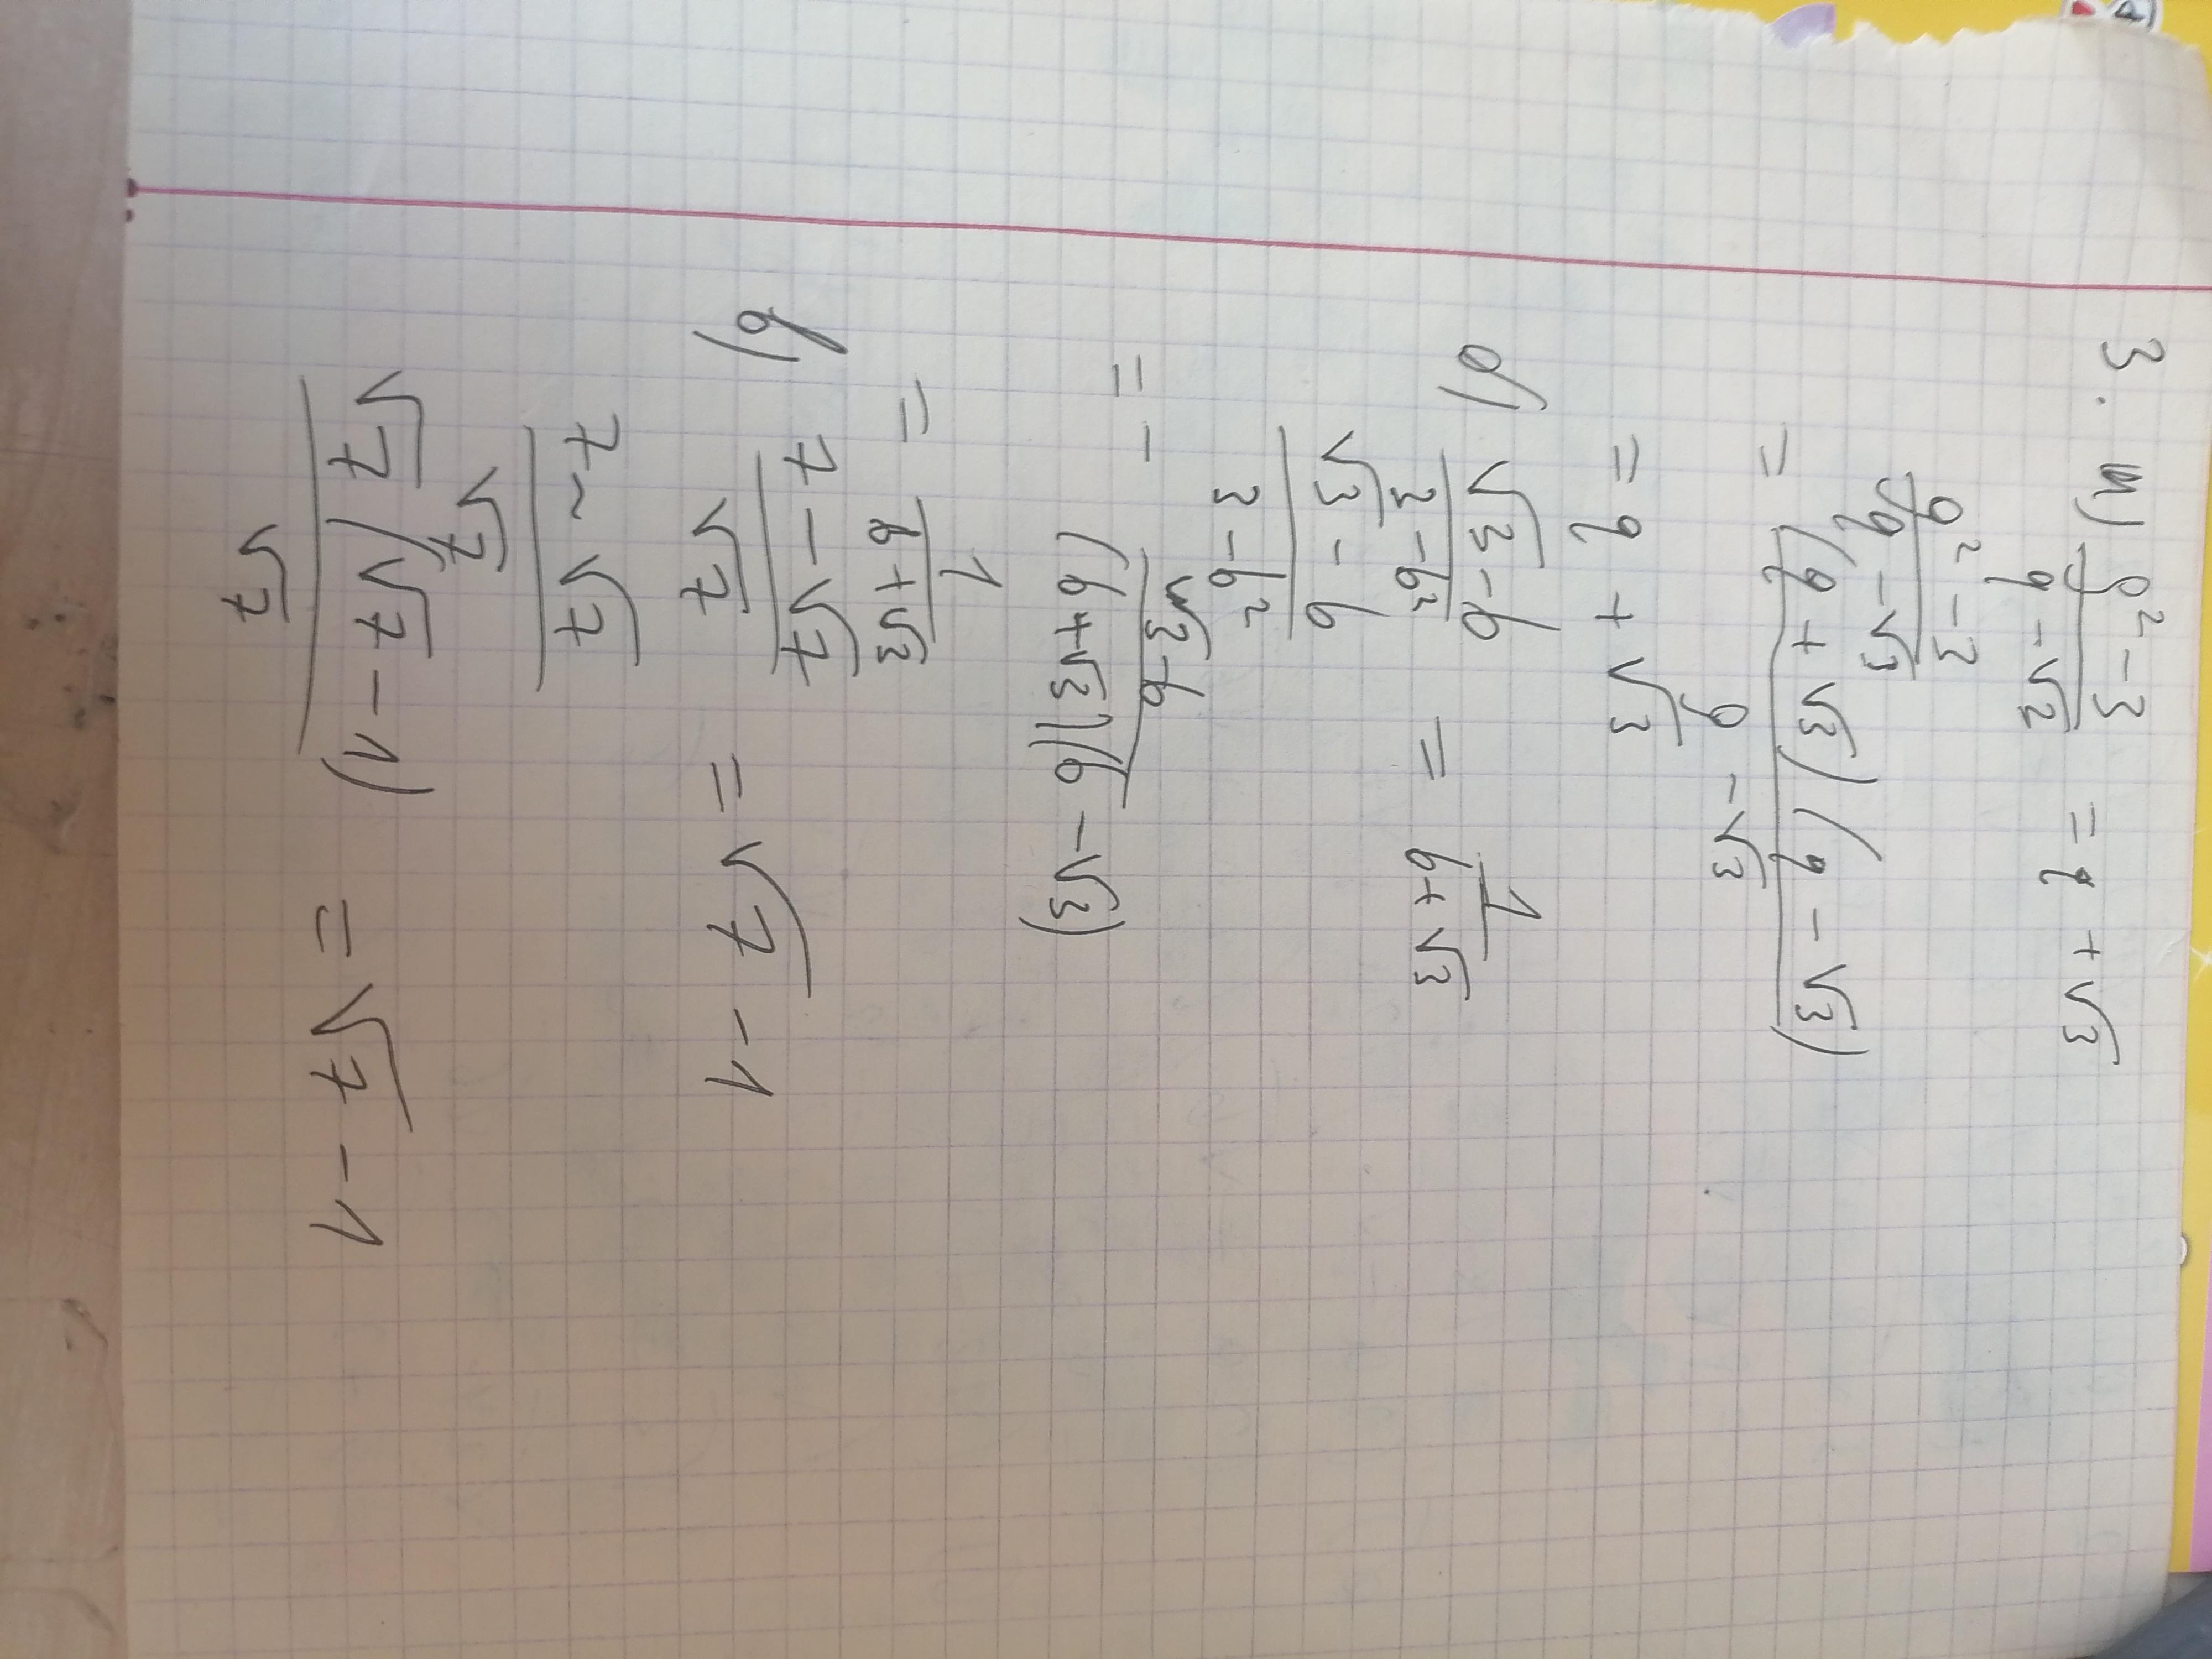 3. а) q² - 3 / q - √2 = q + √3
q² - 3 / q - √3
= (q + √3)(q - √3) / q - √3
= q + √3
б) √3 - b / 3 - b² = 1 / b + √3
√3 - b / 3 - b²
= - √3 - b / (b + √3)(b - √3)
= 1 / b + √3
в) 7 - √7 / √7 = √7 - 1
7 - √7 / √7
√7(√7 - 1) / √7 = √7 - 1